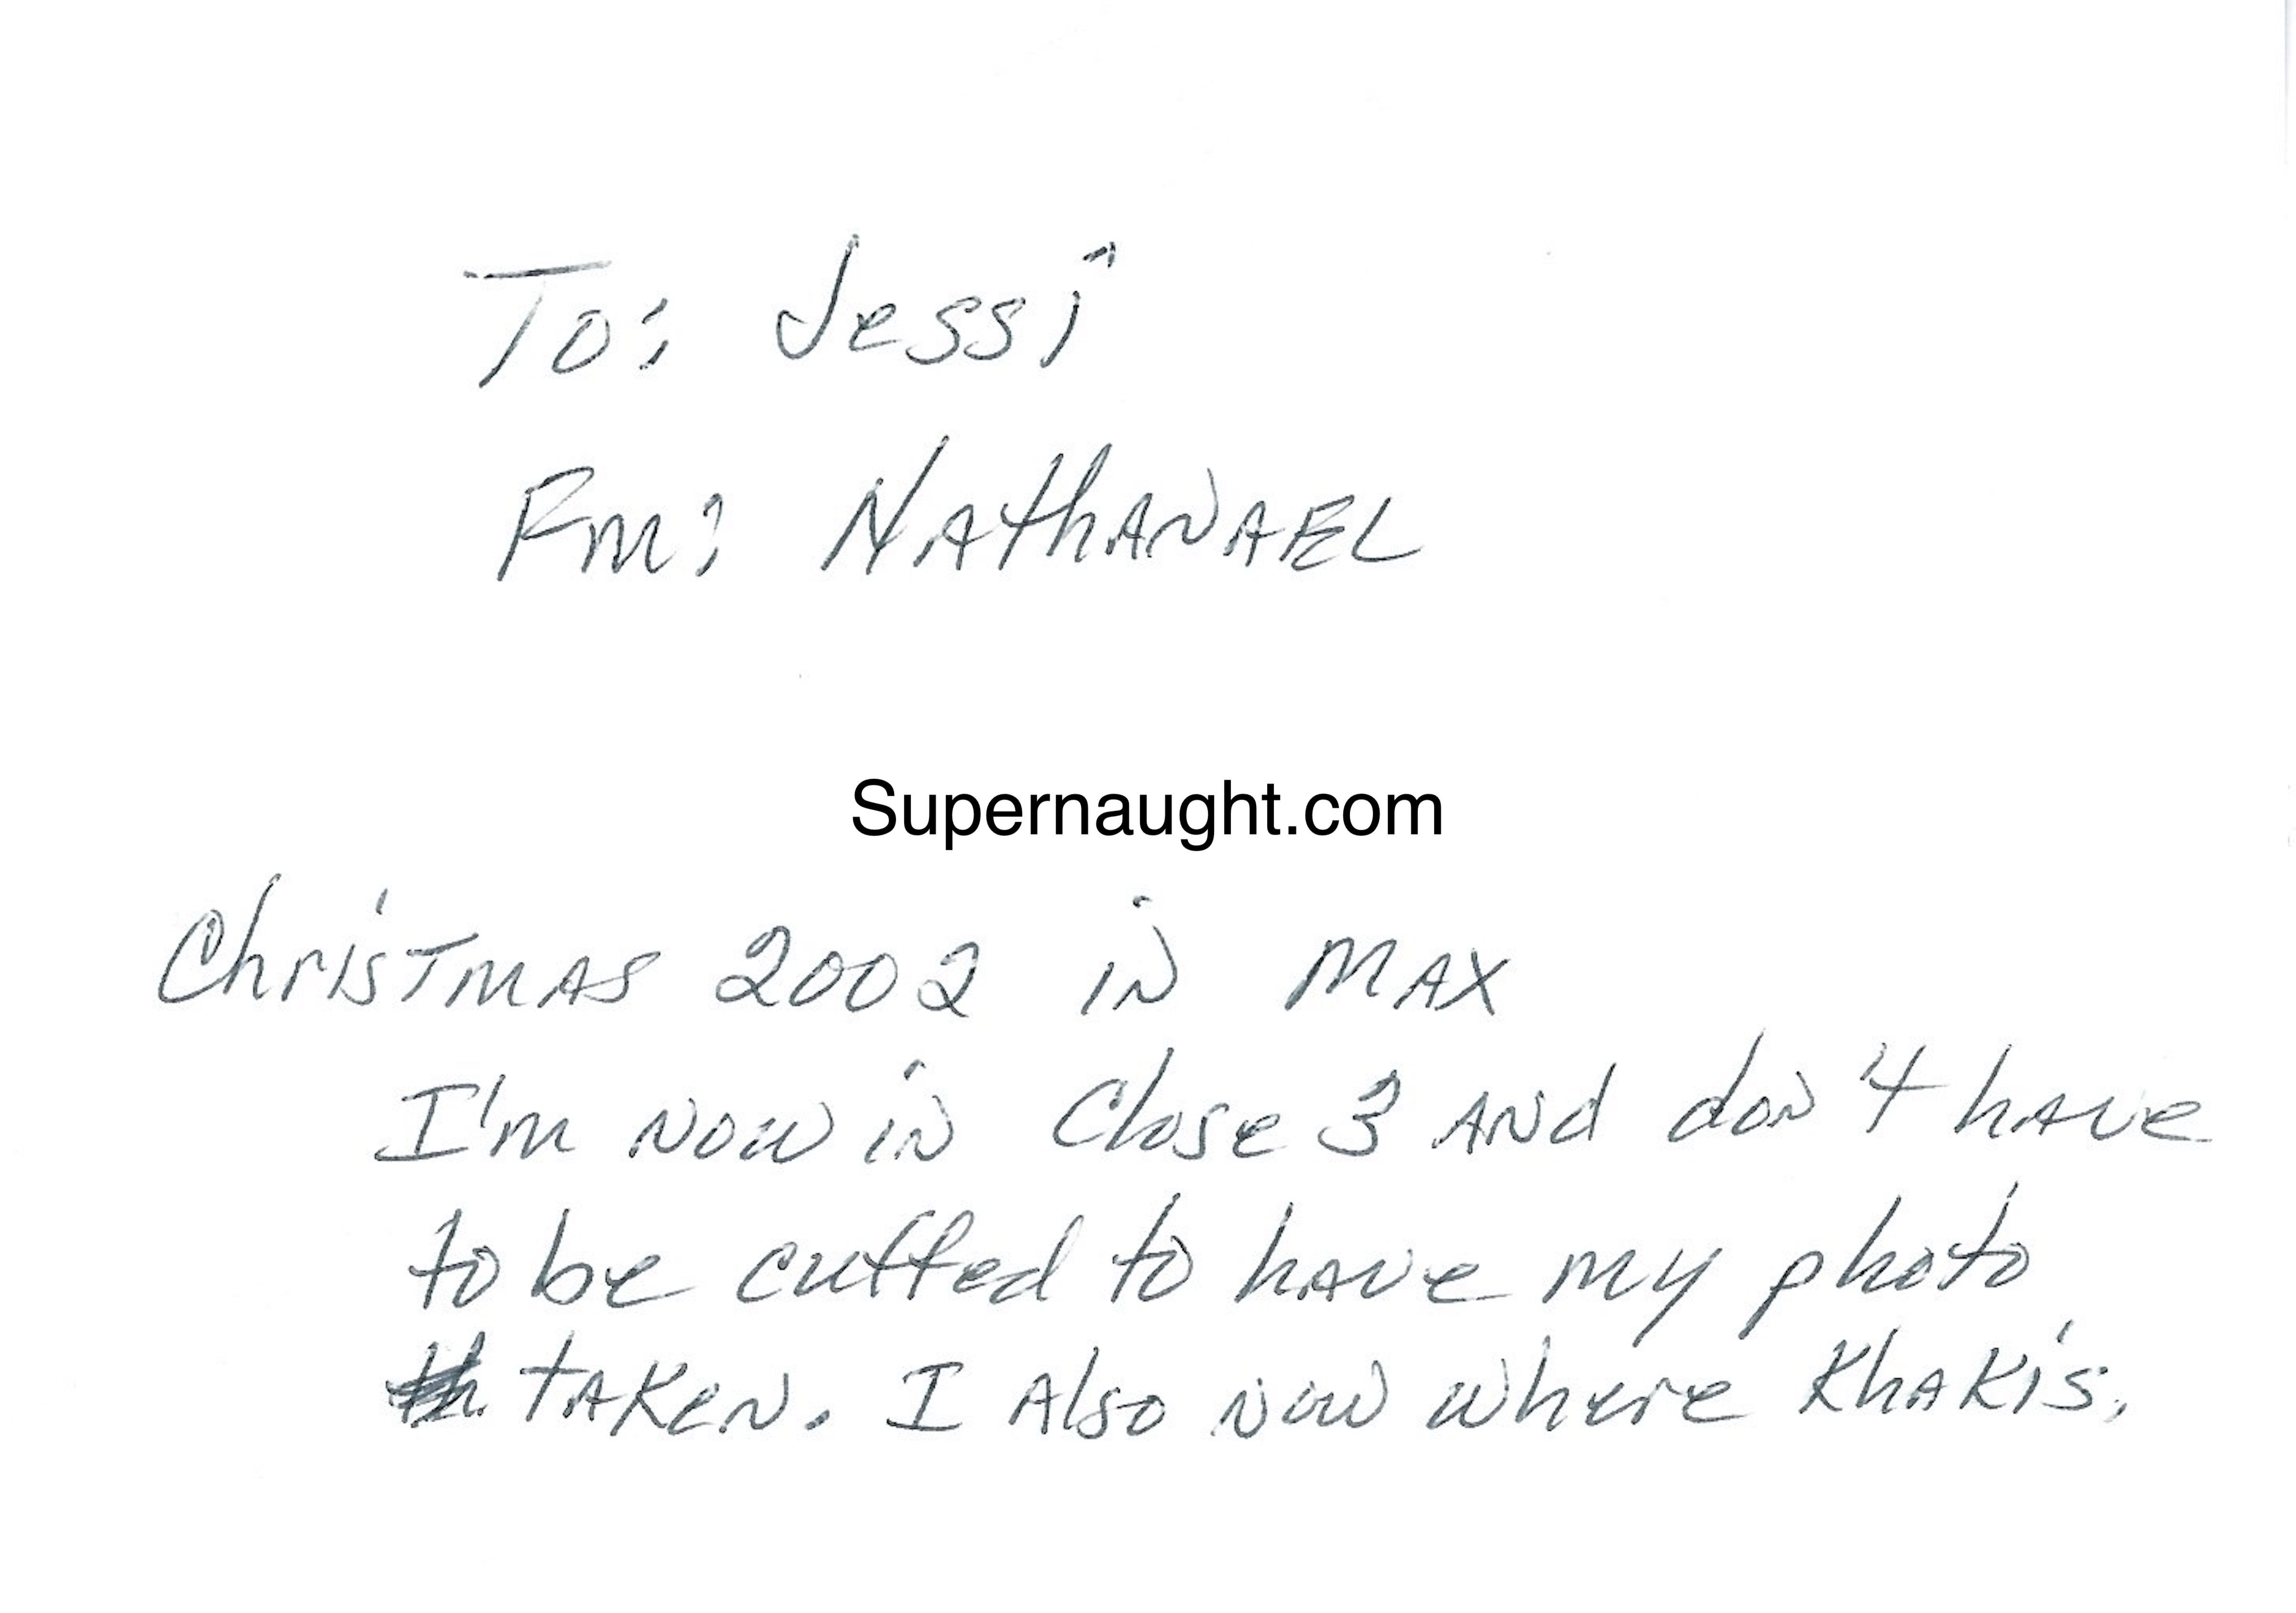 To: Jessi
Fm: NathANAEL
Supernaught.com
ChrisTMAS 2002 iN MAX
I'm NOW iN Close 3 ANd doN't hAve
to be cuffed to hAve my photo
TAKeN. I Also NOW where KhAKi's.